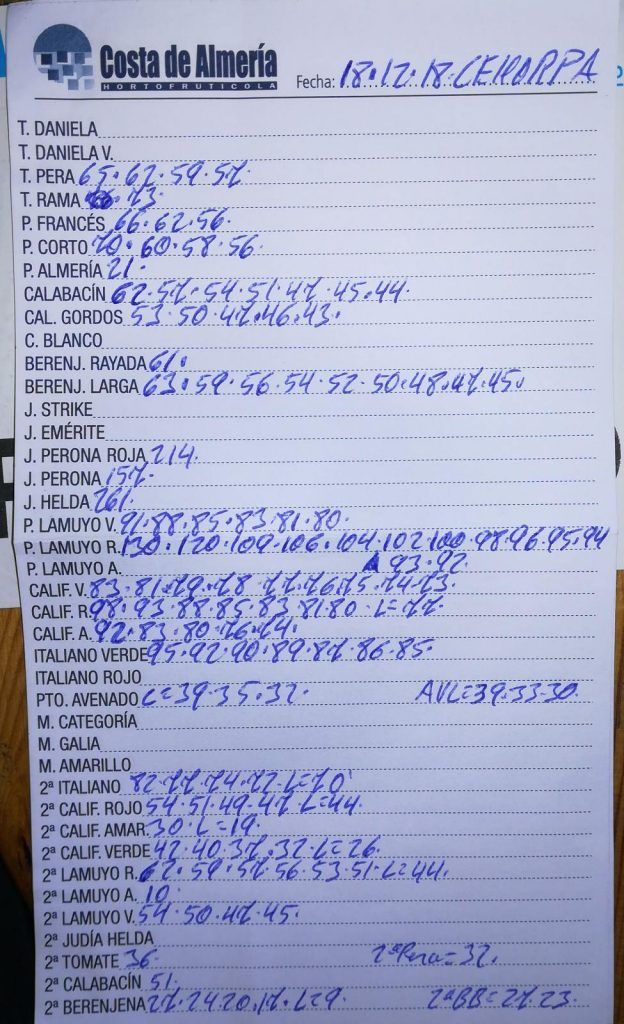 Costa de Almería
HORTOFRUTICOLA
Fecha: 18.12.18. CEHORPA
T. DANIELA
T. DANIELA V.
T. PERA 65.62.59.57.
T. RAMA 73.
P. FRANCÉS 66.62.56.
P. CORTO 70.60.58.56.
P. ALMERÍA 21.
CALABACÍN 62.57.54.51.47.45.44.
CAL. GORDOS 53.50.47.46.43.
C. BLANCO
BERENJ. RAYADA 61.
BERENJ. LARGA 63.59.56.54.52.50.48.47.45.
J. STRIKE
J. EMÉRITE
J. PERONA ROJA 214.
J. PERONA 157.
J. HELDA 261.
P. LAMUYO V. 91.88.85.83.81.80.
P. LAMUYO R. 130.120.109.106.104.102.100.98.96.95.94
P. LAMUYO A. 93.92.
CALIF. V. 83.81.79.78.77.76.75.74.73.
CALIF. R. 98.93.88.85.83.81.80.L=77
CALIF. A. 92.83.80.76.74.
ITALIANO VERDE 95.92.90.89.87.86.85.
ITALIANO ROJO
PTO. AVENADO L=39.35.32. AVL=39.33.30.
M. CATEGORÍA
M. GALIA
M. AMARILLO
2ª ITALIANO 82.77.74.72.L=70
2ª CALIF. ROJO 54.51.49.47.L=44.
2ª CALIF. AMAR. 30.L=19.
2ª CALIF. VERDE 42.40.37.32.L=26.
2ª LAMUYO R. 62.59.57.56.53.51.L=44.
2ª LAMUYO A. 10.
2ª LAMUYO V. 54.50.47.45.
2ª JUDÍA HELDA
2ª TOMATE 36. 2ªPera=32.
2ª CALABACÍN 51.
2ª BERENJENA 27.24.20.17.L=9. 2ªBB=27.23.